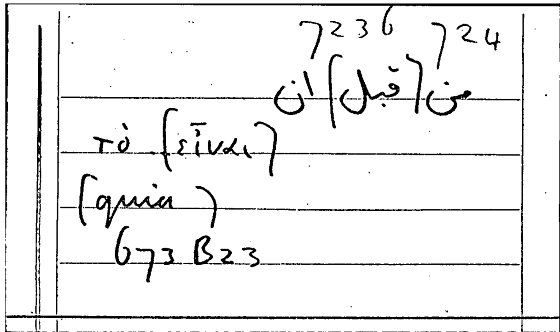 7236 724
من (قبل) ان
τὸ (εἶναι)
(quia)
673 B23